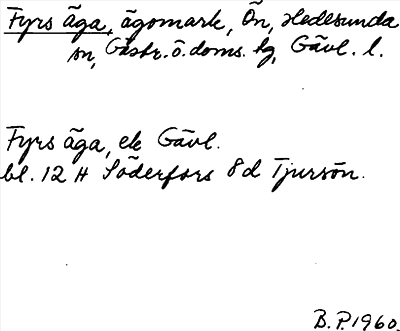 Fyrs äga, ägomark, Ön, Hedesunda
sn, Gästr. ö. doms. lg, Gävl. l.
Fyrs äga, ek Gävl.
bl. 12 H Söderfors 8d Tjursön.
B.P. 1960.